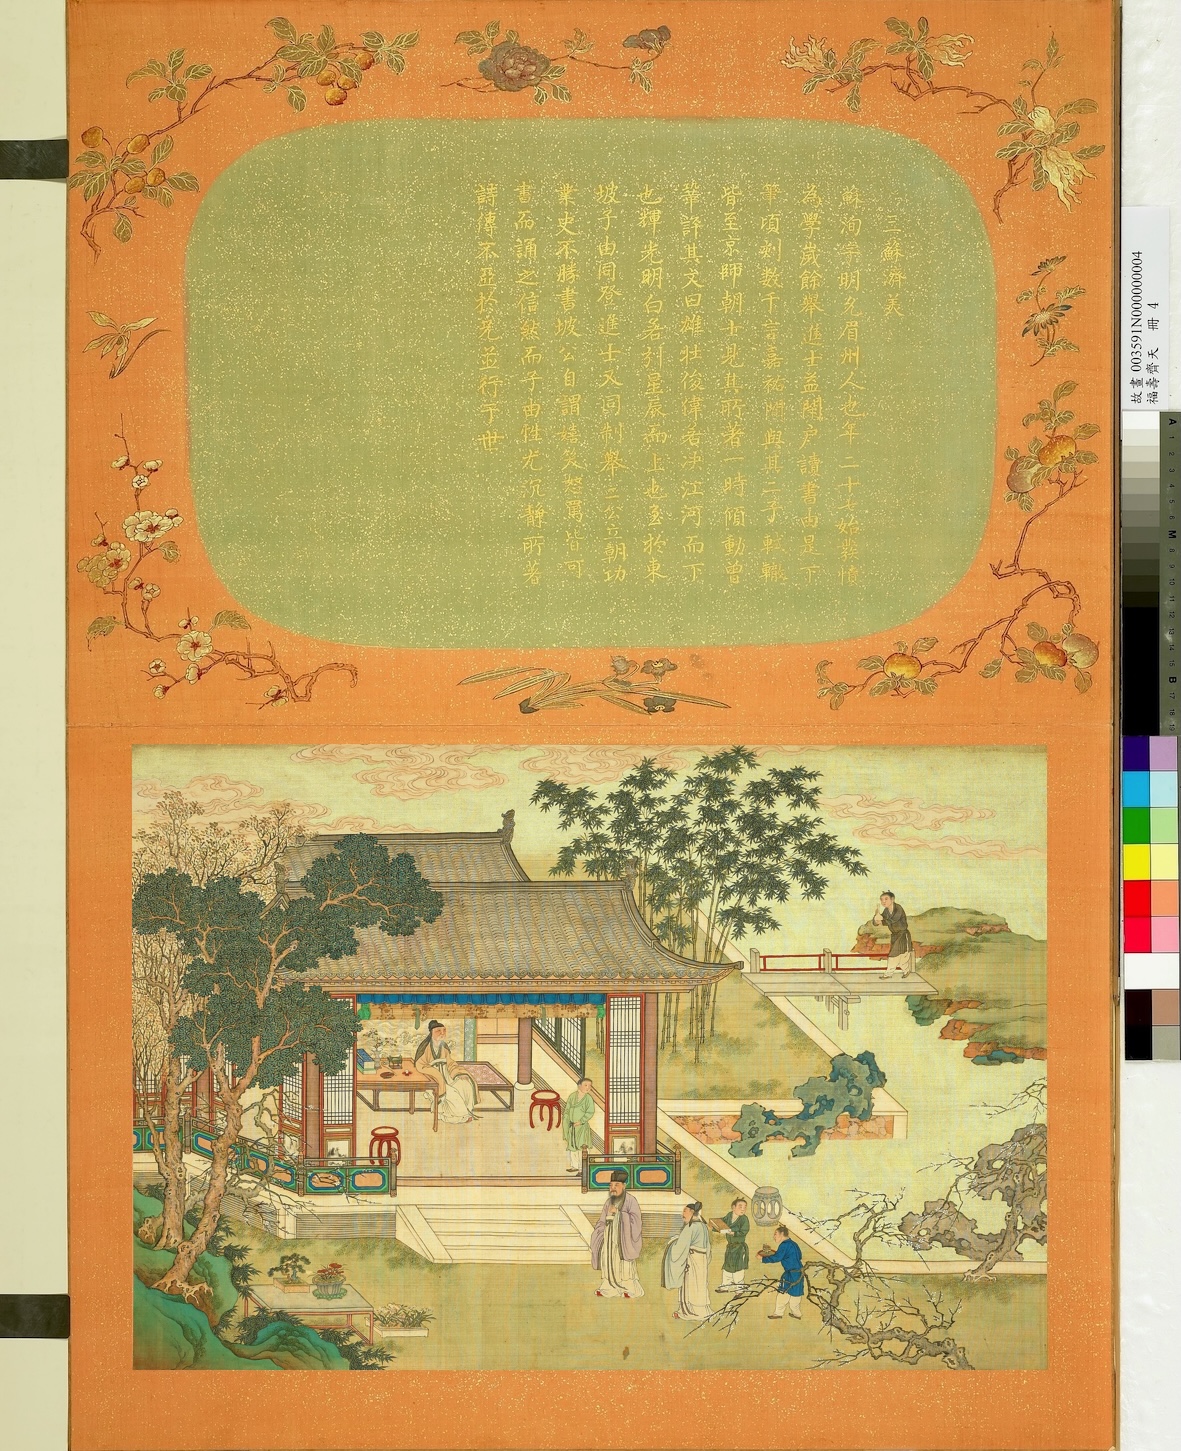 三蘇濟美
蘇洵字明允眉州人也年二十七始發憤
為學歲餘舉進士益閉戶讀書由是下
筆頃刻數千言嘉祐間與其二子軾轍
皆至京師朝士見其所著一時傾動曾
鞏評其文曰雄壯俊偉若決江河而下
也輝光明白若列星辰而上也至於東
坡子由同登進士又同制舉三立朝功
業史不勝書坡公自謂嬉笑怒罵皆可
書而誦之信然而子由性尤沉靜所著
詩傳不亞於兄並行于世
故畫003591N000000004
福壽齊天 冊 4